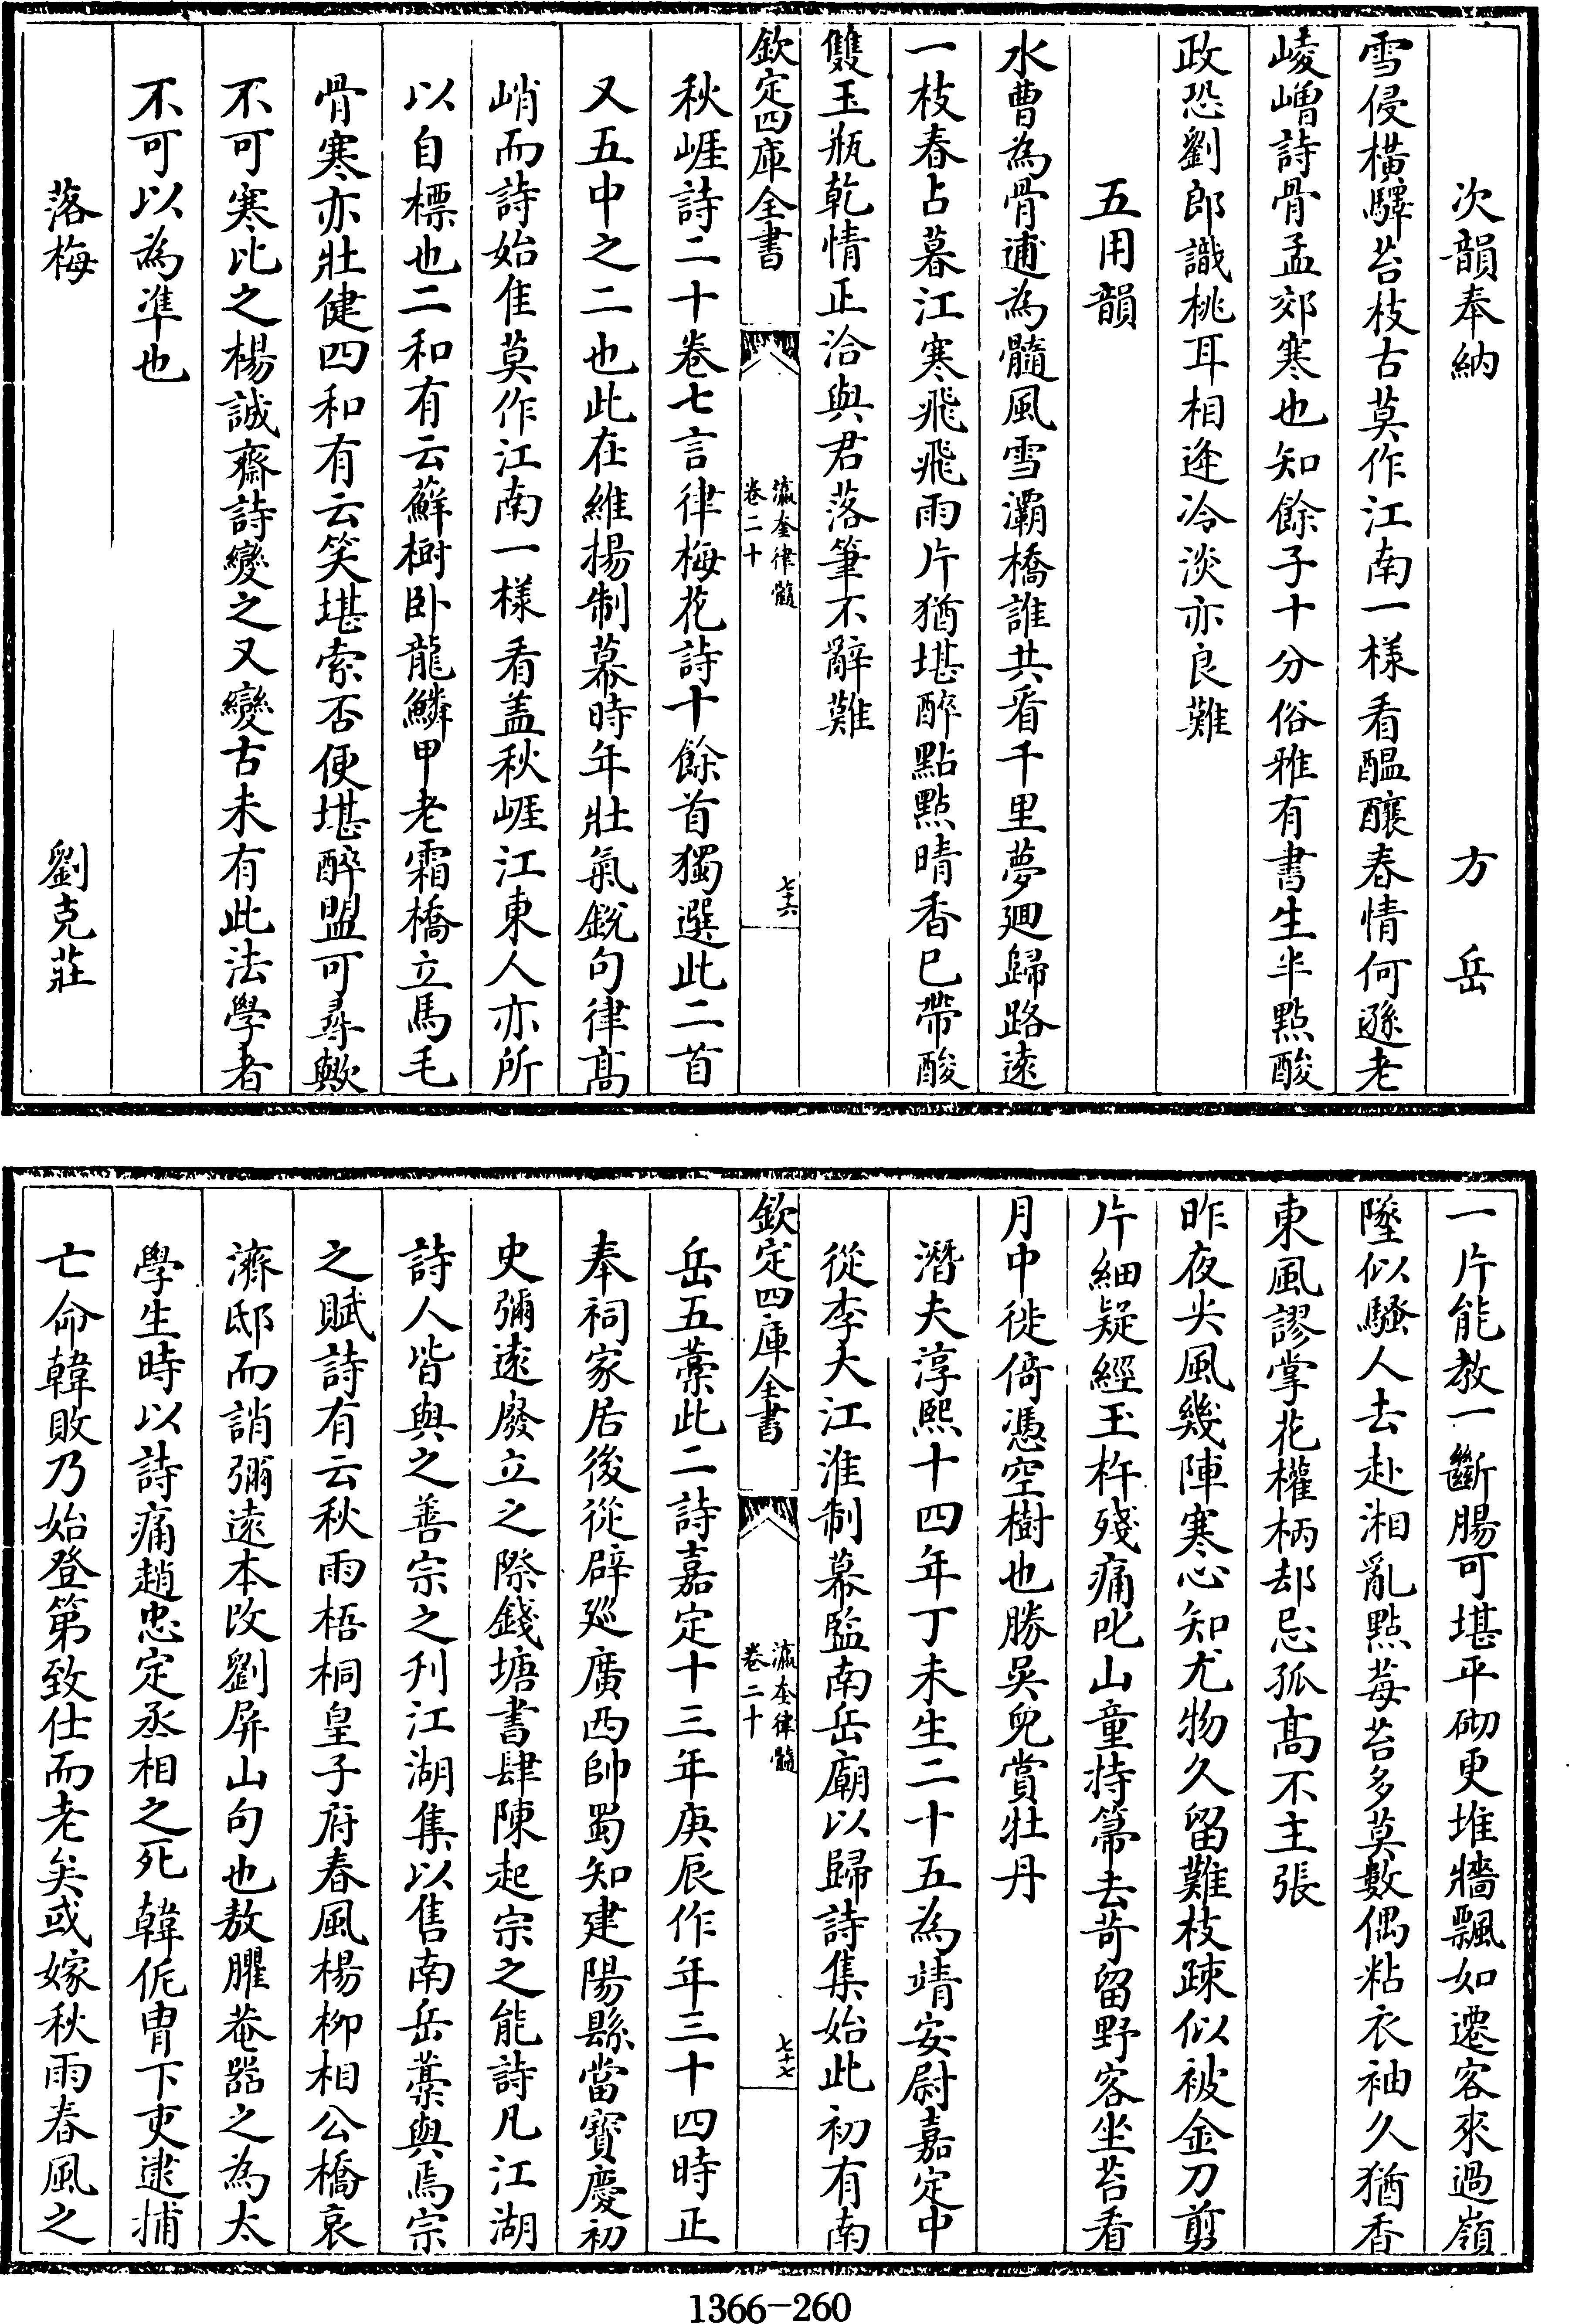 次韻奉納　方岳
雪侵橫驛苔枝古莫作江南一樣看醖釀春情何遜老
崚嶒詩骨孟郊寒也知餘子十分俗雅有書生半點酸
政恐劉郎識桃耳相逢冷淡亦良難
五用韻
水曹為骨逋為髓風雪灞橋誰共看千里夢廻歸路遠
一枝春占暮江寒飛飛雨片猶堪醉點點晴香已帶酸
雙玉瓶乾情正洽與君落筆不辭難
欽定四庫全書　瀛奎律髓　卷二十　七十六
秋崕詩二十卷七言律梅花詩十餘首獨選此二首
又五中之二也此在維楊制幕時年壯氣銳句律髙
峭而詩始隹莫作江南一樣看盖秋崕江東人亦所
以自標也二和有云蘚樹卧龍鱗甲老霜橋立馬毛
骨寒亦壯健四和有云笑堪索否便堪醉盟可尋歟
不可寒比之楊誠齋詩變之又變古未有此法學者
不可以為凖也
落梅　劉克莊
一片能教一斷腸可堪平砌更堆牆飄如遷客來過嶺
墜似騷人去赴湘亂點莓苔多莫數偶粘衣袖久猶香
東風謬掌花權柄却忌孤髙不主張
昨夜尖風幾陣寒心知尤物久留難枝疎似被金刀剪
片細疑經玉杵殘痛叱山童持箒去苛留野客坐苔看
月中徙倚憑空樹也勝吳兒賞牡丹
潛夫淳熙十四年丁未生二十五為靖安尉嘉定中
從李大江淮制幕監南岳廟以歸詩集始此初有南
欽定四庫全書　瀛奎律髓　卷二十　七十七
岳五藁此二詩嘉定十三年庚辰作年三十四時正
奉祠家居後從辟廵廣西帥蜀知建陽縣當寳慶初
史彌遠廢立之際錢塘書肆陳起宗之能詩凡江湖
詩人皆與之善宗之刋江湖集以售南岳藁與焉宗
之賦詩有云秋雨梧桐皇子府春風楊柳相公橋哀
濟邸而誚彌遠本改劉屏山句也敖臞菴器之為太
學生時以詩痛趙忠定丞相之死韓侂冑下吏逮捕
亡命韓敗乃始登第致仕而老矣或嫁秋雨春風之
1366-260